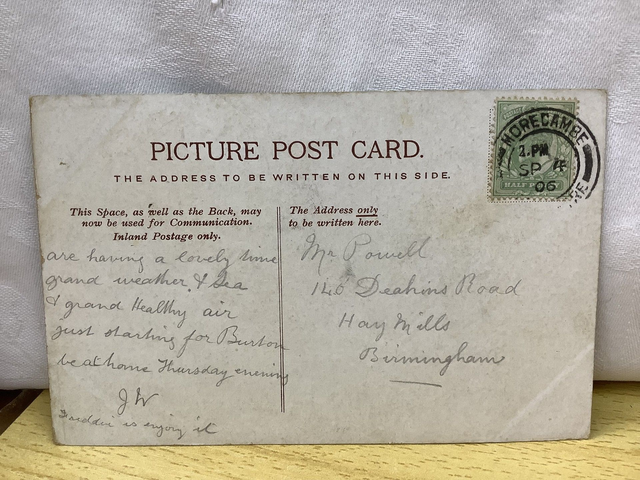 PICTURE POST CARD.
THE ADDRESS TO BE WRITTEN ON THIS SIDE.
This Space, as well as the Back, may
now be used for Communication.
Inland Postage only.
The Address only
to be written here.
MORECAMBE
2.PM
SP 4
06
HALF
are having a lovely time
grand weather & Sea
& grand Healthy air
just starting for Burton
be at home Thursday evening
JW
is enjoy it
Mr Powell
146 Deakins Road
Hay Mills
Birmingham